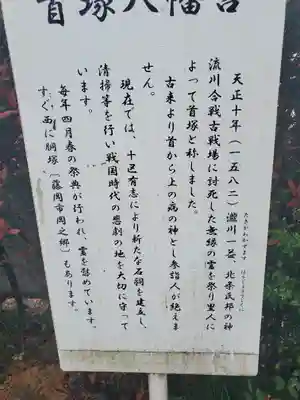 首塚八幡宮
天正十年(一五八二)瀧川一益、北条氏邦の神
流川合戦古戦場に討死した無縁の霊を祭り里人に
よって首塚と称しました。
古来より首から上の病の神とし参詣人が絶えま
せん。
現在では、十区有志により新たな石祠を建立し、
清掃等を行い戦国時代の悲劇の地を大切に守って
います。
毎年四月春の祭典が行われ、霊を慰めています。
すぐ西に胴塚(藤岡市岡之郷)もあります。